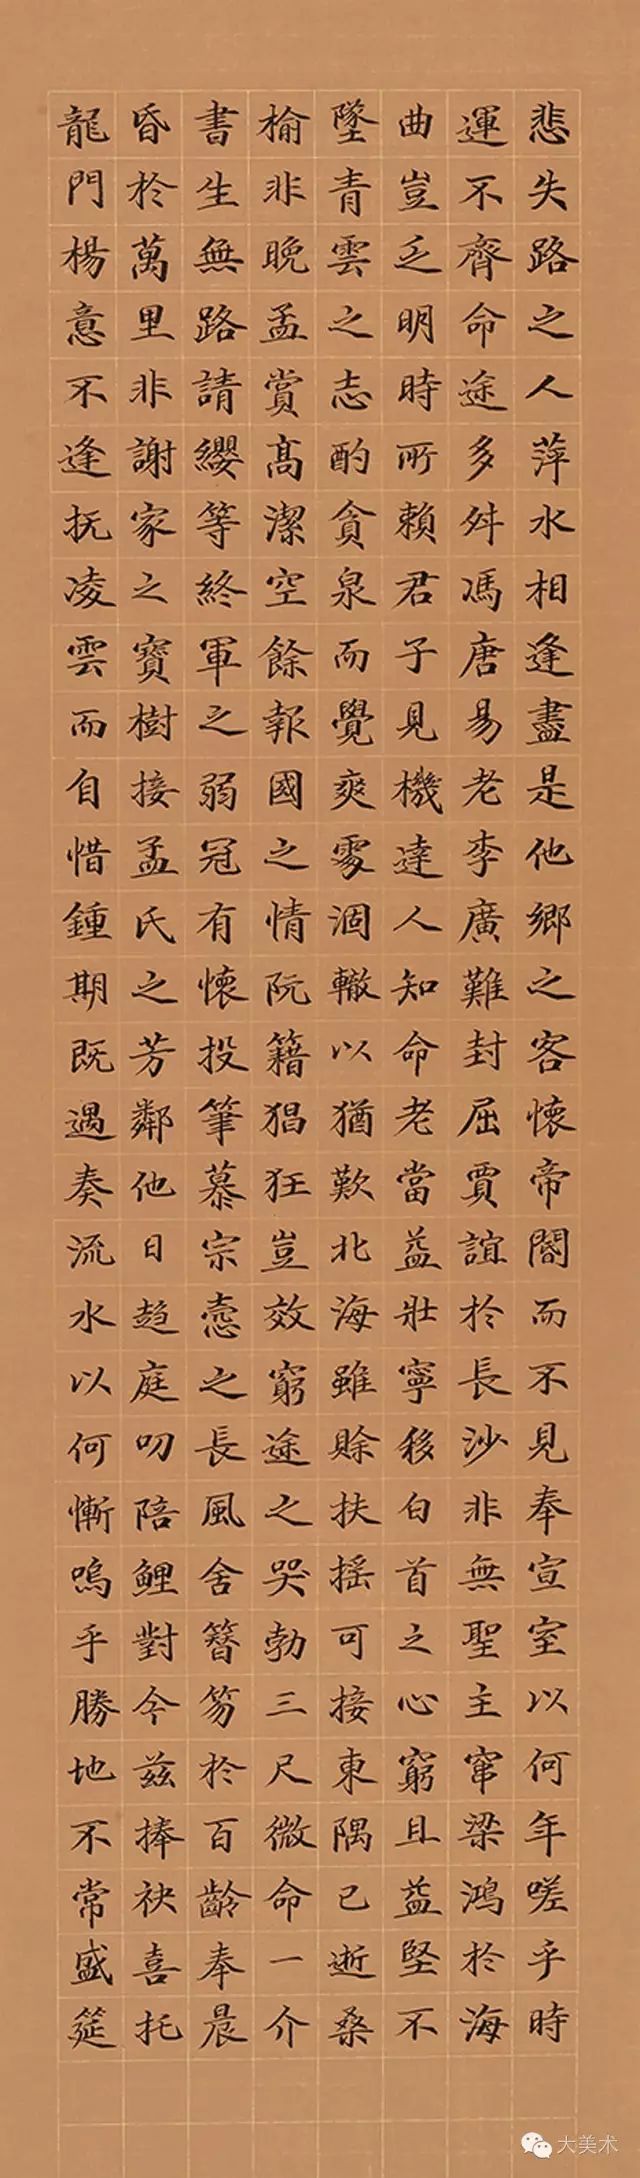 悲失路之人萍水相逢盡是他鄉之客懷帝閽而不見奉宣室以何年嗟乎時
運不齊命途多舛馮唐易老李廣難封屈賈誼於長沙非無聖主竄梁鴻於海
曲豈乏明時所賴君子見機達人知命老當益壯寧移白首之心窮且益堅不
墜青雲之志酌貪泉而覺爽處涸轍以猶歎北海雖賒扶搖可接東隅已逝桑
榆非晚孟賞高潔空餘報國之情阮籍猖狂豈效窮途之哭勃三尺微命一介
書生無路請纓等終軍之弱冠有懷投筆慕宗愨之長風舍簪笏於百齡奉晨
昏於萬里非謝家之寶樹接孟氏之芳鄰他日趋庭叨陪鯉對今茲捧袂喜托
龍門楊意不逢抚凌雲而自惜鍾期既遇奏流水以何慚嗚乎勝地不常盛筵
大美术